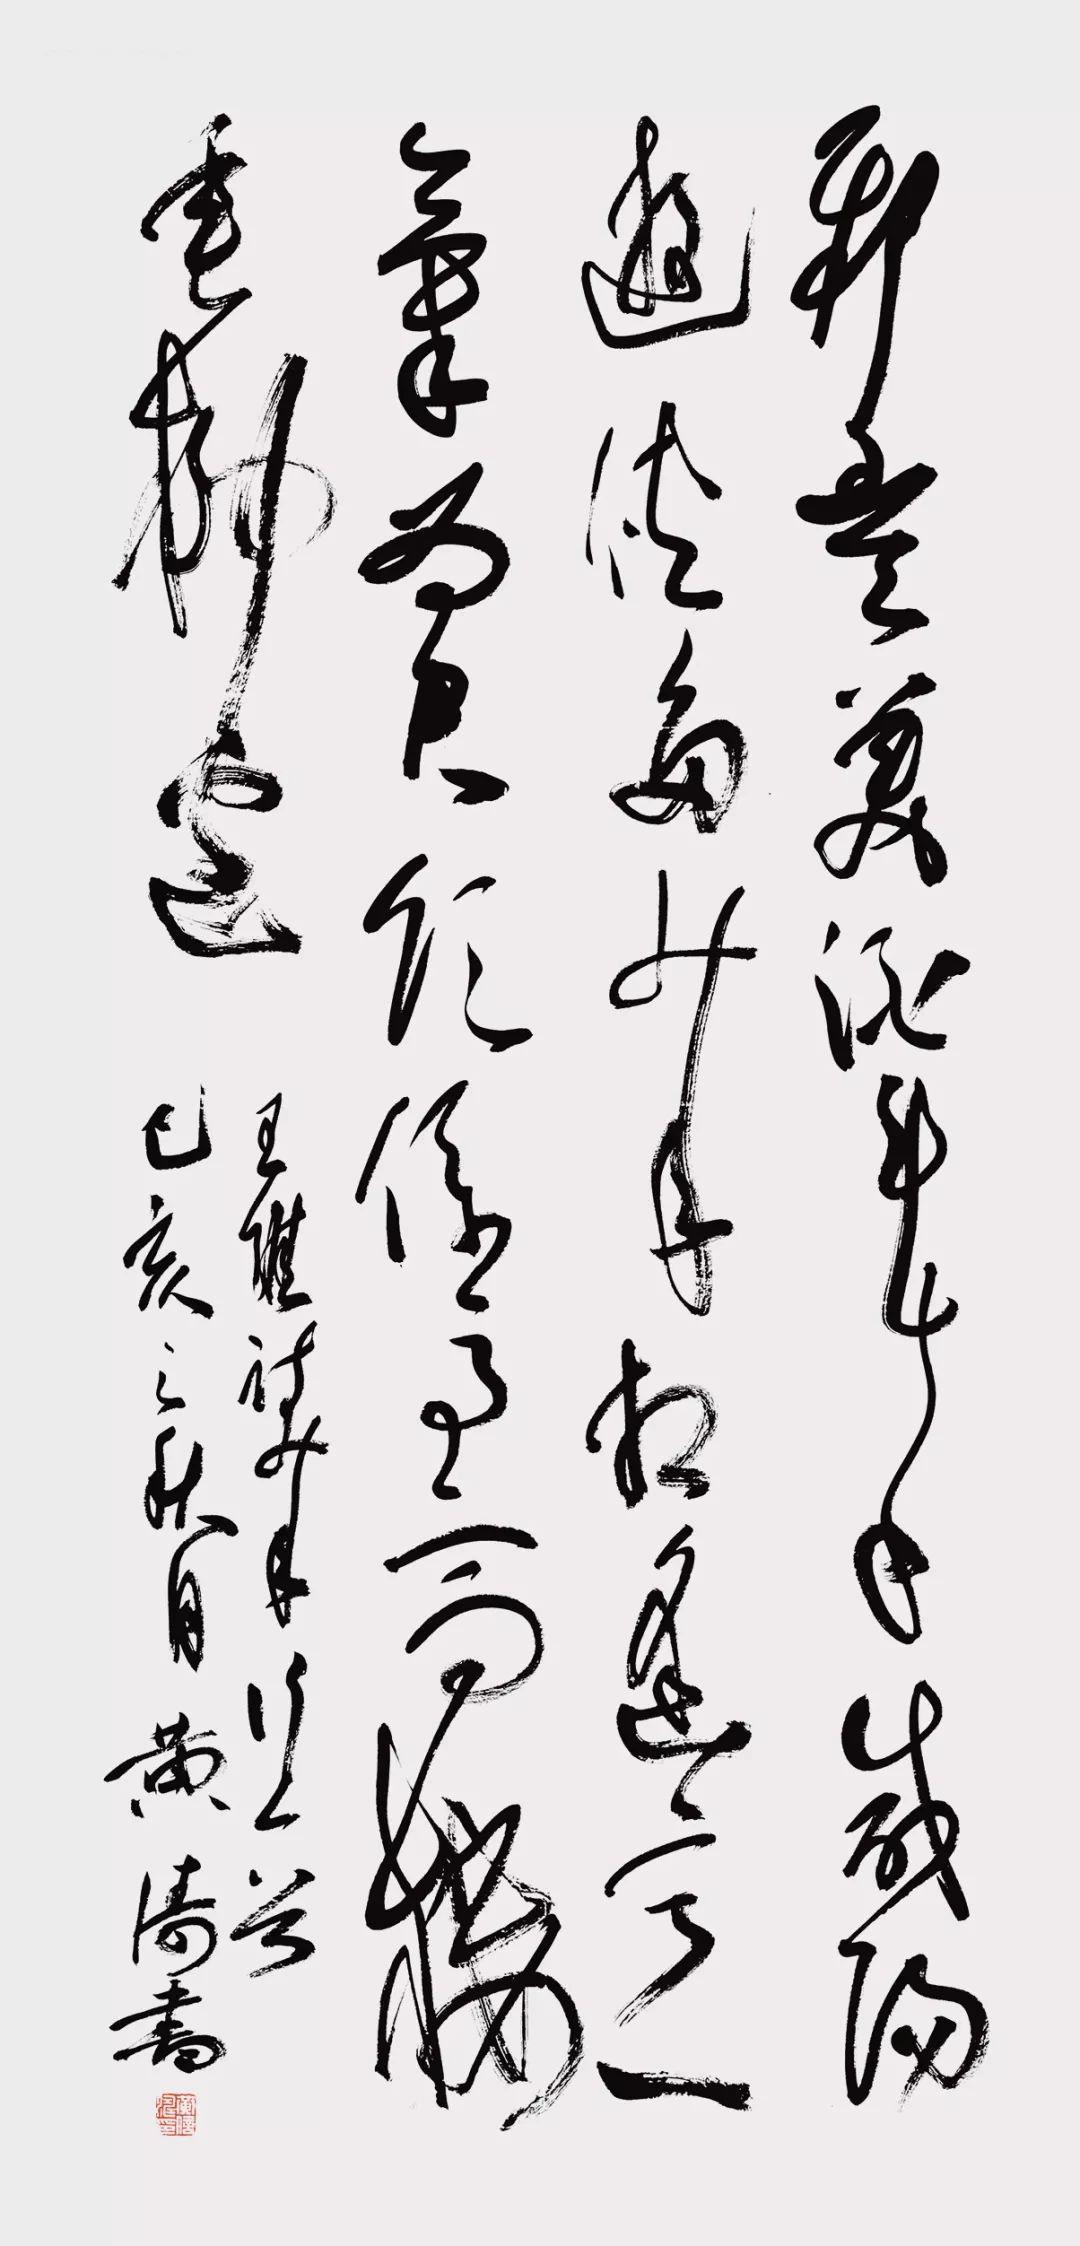 新豐美酒斗十千咸陽
遊俠多少年相逢意
氣為君飲係馬高樓
垂柳邊
王維詩少年行一首
己亥之秋月黃書